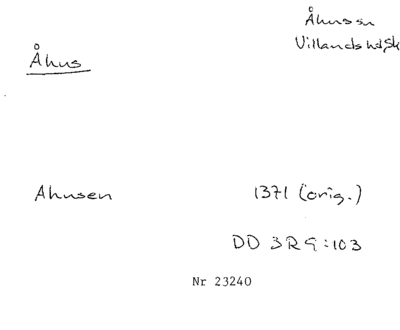 Åhus sn
Villands hd, Sk
Åhus
Ahusen 1371 (orig.)
DD 3R 9:103
Nr 23240